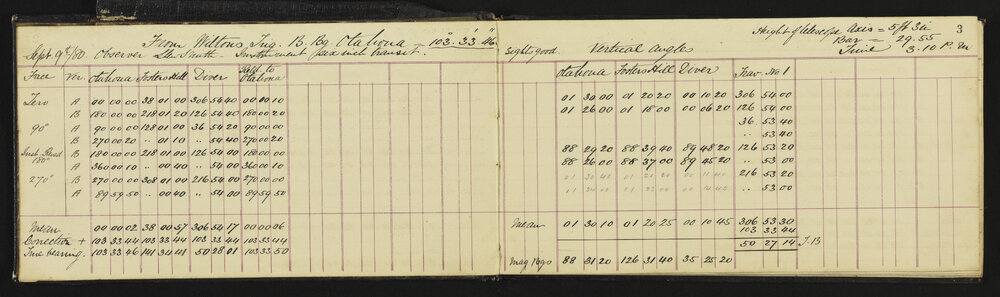 From Wiltons Trig. B. Bg Otahoua = 103° 33' 46"
Height of telescope Axis = 5 ft 3 in 3
Sept 9th/80. Observer Ll. Smith. Instrument 5 inch transit. Sights good Vertical Angles Bar = 29.55
Time 3.10 P.M
Face Ver. Otahoua Fosters Hill Diver Held to Otahoua Otahoua Fosters Hill Diver Trav. No 1
Zero A 00 00 00 38 01 00 306 54 40 00 00 10 01 30 00 01 20 20 00 10 20 306 54 00
B 180 00 00 218 01 20 126 54 40 180 00 20 01 26 00 01 18 00 00 06 20 126 54 00
90° A 90 00 00 128 01 00 36 54 20 90 00 00 36 53 40
B 270 00 20 " 01 10 " 54 40 270 00 20 " 53 40
180° B 180 00 00 218 01 00 126 54 00 180 00 00 88 29 20 88 39 40 89 48 20 126 53 20
A 360 00 10 " 00 40 " 54 00 360 00 10 88 26 00 88 37 00 89 45 20 " 53 00
270° B 270 00 00 308 01 00 216 54 00 270 00 00 01 30 40 01 20 20 00 11 40 216 53 20
A 89 59 50 " 00 40 " 54 00 89 59 50 " 53 00
Mean 00 00 02 38 00 57 306 54 17 00 00 06 Mean 01 30 10 01 20 25 00 10 45 306 53 30
Correction + 103 33 44 103 33 44 103 33 44 103 33 44 103 33 44
True bearing. 103 33 46 141 34 41 50 28 01 103 33 50 50 27 14 T.B
Mag 88 31 20 126 31 40 35 25 20